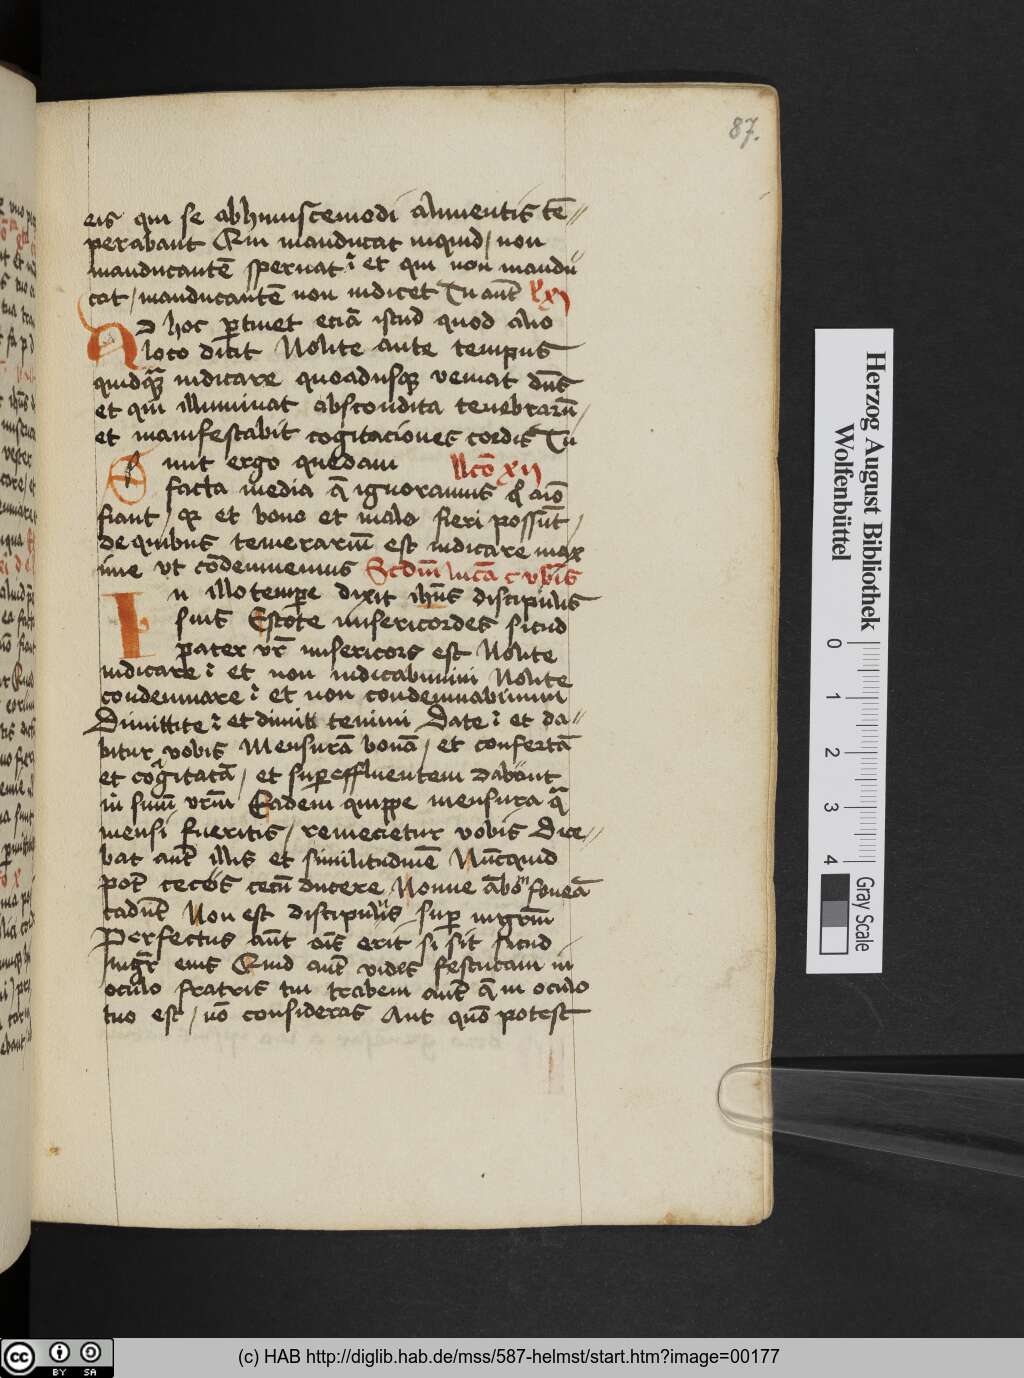 87.
eis qui se abhuiuscemodi alimentis tē⸗
perabant Qui manducat inquid / non
manducantē spernat et qui non mandu
cat / manducantē non iudicet Tu aūt lc̄ xj
Ad hoc ꝑtinet eciā istud quod alio
loco dicit Nolite ante tempus
quidq̄ȝ iudicare quoadusqȝ veniat dn̄s
et qui illuminat abscondita tenebrarū /
et manifestabit cogitaciones cordis Tu
Sunt ergo quedam llcō xij
facta media q̄ ignoramus q aīo
fiant / qȝ et bono et malo fieri possūt /
de quibus temerariū est iudicare max
ime vt cōdemnemus Scdm̄ lucā
In illo tempore dixit ihūs discipulis
suis Estote misericordes sicud
pater vr̄ misericors est Nolite
iudicare et non iudicabimini Nolite
condemnare et non condemnabimini
Dimittite et dimitt temini Date et da⸗
bitur vobis Mensurā bonā / et confertā
et cogitatā / et suꝑeffluentem dabunt
in sinū vrm̄ Eadem quippe mensura q̄
mensi fueritis / remecietur vobis Dice⸗
bat aūt illis et similitudinē Nūcquid
pot̄ cecus cecū ducere Nonne ābo foueā
cadūt Non est discipulus suꝑ mgrm̄
Perfectus aūt oīs erit si sit sicud
mgr̄ eius Quid aūt vides festucam in
oculo fratris tui trabem aūt q̄ in oculo
tuo est / nō consideras Aut quō potest
Herzog August Bibliothek
Wolfenbüttel
0
1
2
3
4
Gray Scale
cc BY SA
(c) HAB http://diglib.hab.de/mss/587-helmst/start.htm?image=00177